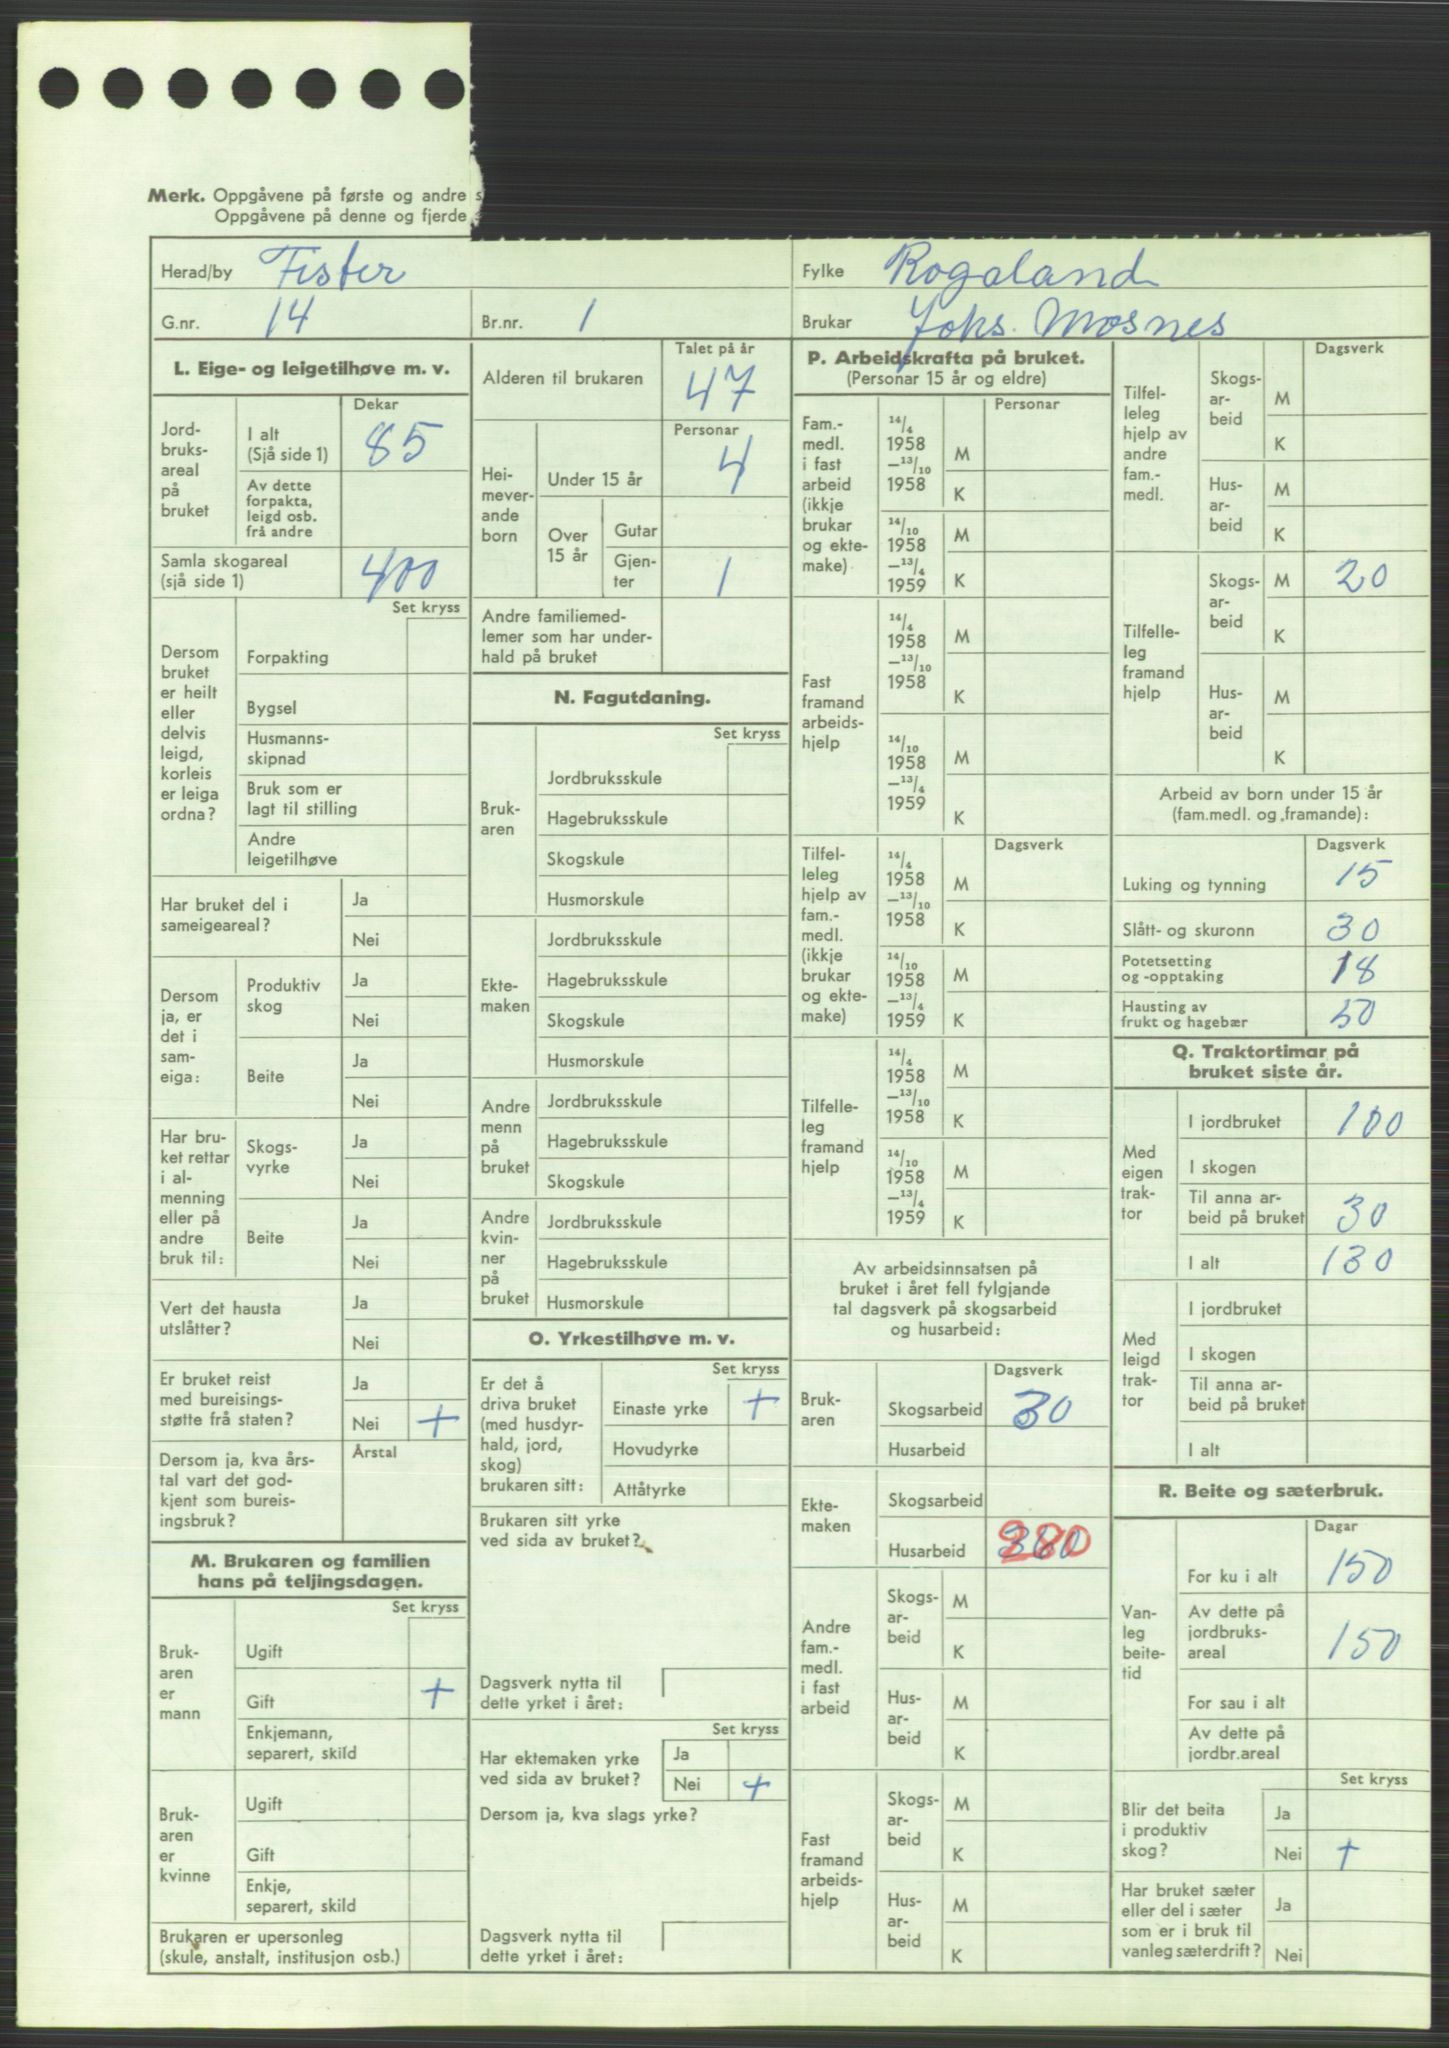 Merk. Oppgåvene på første og andre s
Oppgåvene på denne og fjerde s
Herad/by Fister
Fylke Rogaland
G.nr. 14
Br.nr. 1
Brukar Johs. Mosnes
L. Eige- og leigetilhøve m. v.
Dekar
Jord-
bruks-
areal
på
bruket
I alt
(Sjå side 1) 85
Av dette
forpakta,
leigd osb.
frå andre
Samla skogareal
(sjå side 1) 400
Set kryss
Dersom
bruket
er heilt
eller
delvis
leigd,
korleis
er leiga
ordna?
Forpakting
Bygsel
Husmanns-
skipnad
Bruk som er
lagt til stilling
Andre
leigetilhøve
Har bruket del i
sameigeareal?
Ja
Nei
Dersom
ja, er
det i
sam-
eiga:
Produktiv
skog
Ja
Nei
Beite
Ja
Nei
Har bru-
ket rettar
i al-
menning
eller på
andre
bruk til:
Skogs-
vyrke
Ja
Nei
Beite
Ja
Nei
Vert det hausta
utslåtter?
Ja
Nei
Er bruket reist
med bureisings-
støtte frå staten?
Ja
Nei +
Dersom ja, kva års-
tal vart det god-
kjent som bureis-
ingsbruk?
Årstal
M. Brukaren og familien
hans på teljingsdagen.
Set kryss
Bruk-
aren
er
mann
Ugift
Gift +
Enkjemann,
separert, skild
Bruk-
aren
er
kvinne
Ugift
Gift
Enkje,
separert, skild
Brukaren er upersonleg
(skule, anstalt, institusjon osb.)
Talet på år
Alderen til brukaren 47
Personar
Hei-
mever-
ande
born
Under 15 år 4
Over
15 år
Gutar
Gjen-
ter 1
Andre familiemed-
lemer som har under-
hald på bruket
N. Fagutdaning.
Set kryss
Bruk-
aren
Jordbruksskule
Hagebruksskule
Skogskule
Husmorskule
Ekte-
maken
Jordbruksskule
Hagebruksskule
Skogskule
Husmorskule
Andre
menn
på
bruket
Jordbruksskule
Hagebruksskule
Skogskule
Andre
kvin-
ner
på
bruket
Jordbruksskule
Hagebruksskule
Husmorskule
O. Yrkestilhøve m. v.
Set kryss
Er det å
driva bruket
(med husdyr-
hald, jord,
skog)
brukaren sitt:
Einaste yrke +
Hovudyrke
Attåtyrke
Brukaren sitt yrke
ved sida av bruket?
Dagsverk nytta til
dette yrket i året:
Set kryss
Har ektemaken yrke
ved sida av bruket?
Ja
Nei +
Dersom ja, kva slags yrke?
Dagsverk nytta til
dette yrket i året:
P. Arbeidskrafta på bruket.
(Personar 15 år og eldre)
Personar
Fam.-
medl.
i fast
arbeid
(ikkje
brukar
og ekte-
make)
14/4
1958
–13/10
1958
M
K
14/10
1958
–13/4
1959
M
K
Fast
framand
arbeids-
hjelp
14/4
1958
–13/10
1958
M
K
14/10
1958
–13/4
1959
M
K
Dagsverk
Tilfel-
leleg
hjelp av
fam.-
medl.
(ikkje
brukar
og ekte-
make)
14/4
1958
–13/10
1958
M
K
14/10
1958
–13/4
1959
M
K
Tilfelle-
leg
framand
hjelp
14/4
1958
–13/10
1958
M
K
14/10
1958
–13/4
1959
M
K
Av arbeidsinnsatsen på
bruket i året fell fylgjande
tal dagsverk på skogsarbeid
og husarbeid:
Dagsverk
Bruk-
aren
Skogsarbeid 30
Husarbeid
Ekte-
maken
Skogsarbeid
Husarbeid 280
Andre
fam.-
medl.
i fast
arbeid
Skogs-
ar-
beid
M
K
Hus-
ar-
beid
M
K
Fast
framand
arbeids-
hjelp
Skogs-
ar-
beid
M
K
Hus-
ar-
beid
M
K
Dagsverk
Tilfel-
leleg
hjelp av
andre
fam.-
medl.
Skogs-
ar-
beid
M
K
Hus-
ar-
beid
M
K
Tilfelle-
leg
framand
hjelp
Skogs-
ar-
beid
M 20
K
Hus-
ar-
beid
M
K
Arbeid av born under 15 år
(fam.medl. og framande):
Dagsverk
Luking og tynning 15
Slått- og skuronn 30
Potetsetting
og -opptaking 18
Hausting av
frukt og hagebær 50
Q. Traktortimar på
bruket siste år.
Med
eigen
trak-
tor
I jordbruket 100
I skogen
Til anna ar-
beid på bruket 30
I alt 130
Med
leigd
trak-
tor
I jordbruket
I skogen
Til anna ar-
beid på bruket
I alt
R. Beite og sæterbruk.
Dagar
Van-
leg
beite-
tid
For ku i alt 150
Av dette på
jordbruks-
areal 150
For sau i alt
Av dette på
jordbr.areal
Set kryss
Blir det beita
i produktiv
skog?
Ja
Nei +
Har bruket sæter
eller del i sæter
som er i bruk til
vanleg sæterdrift?
Ja
Nei